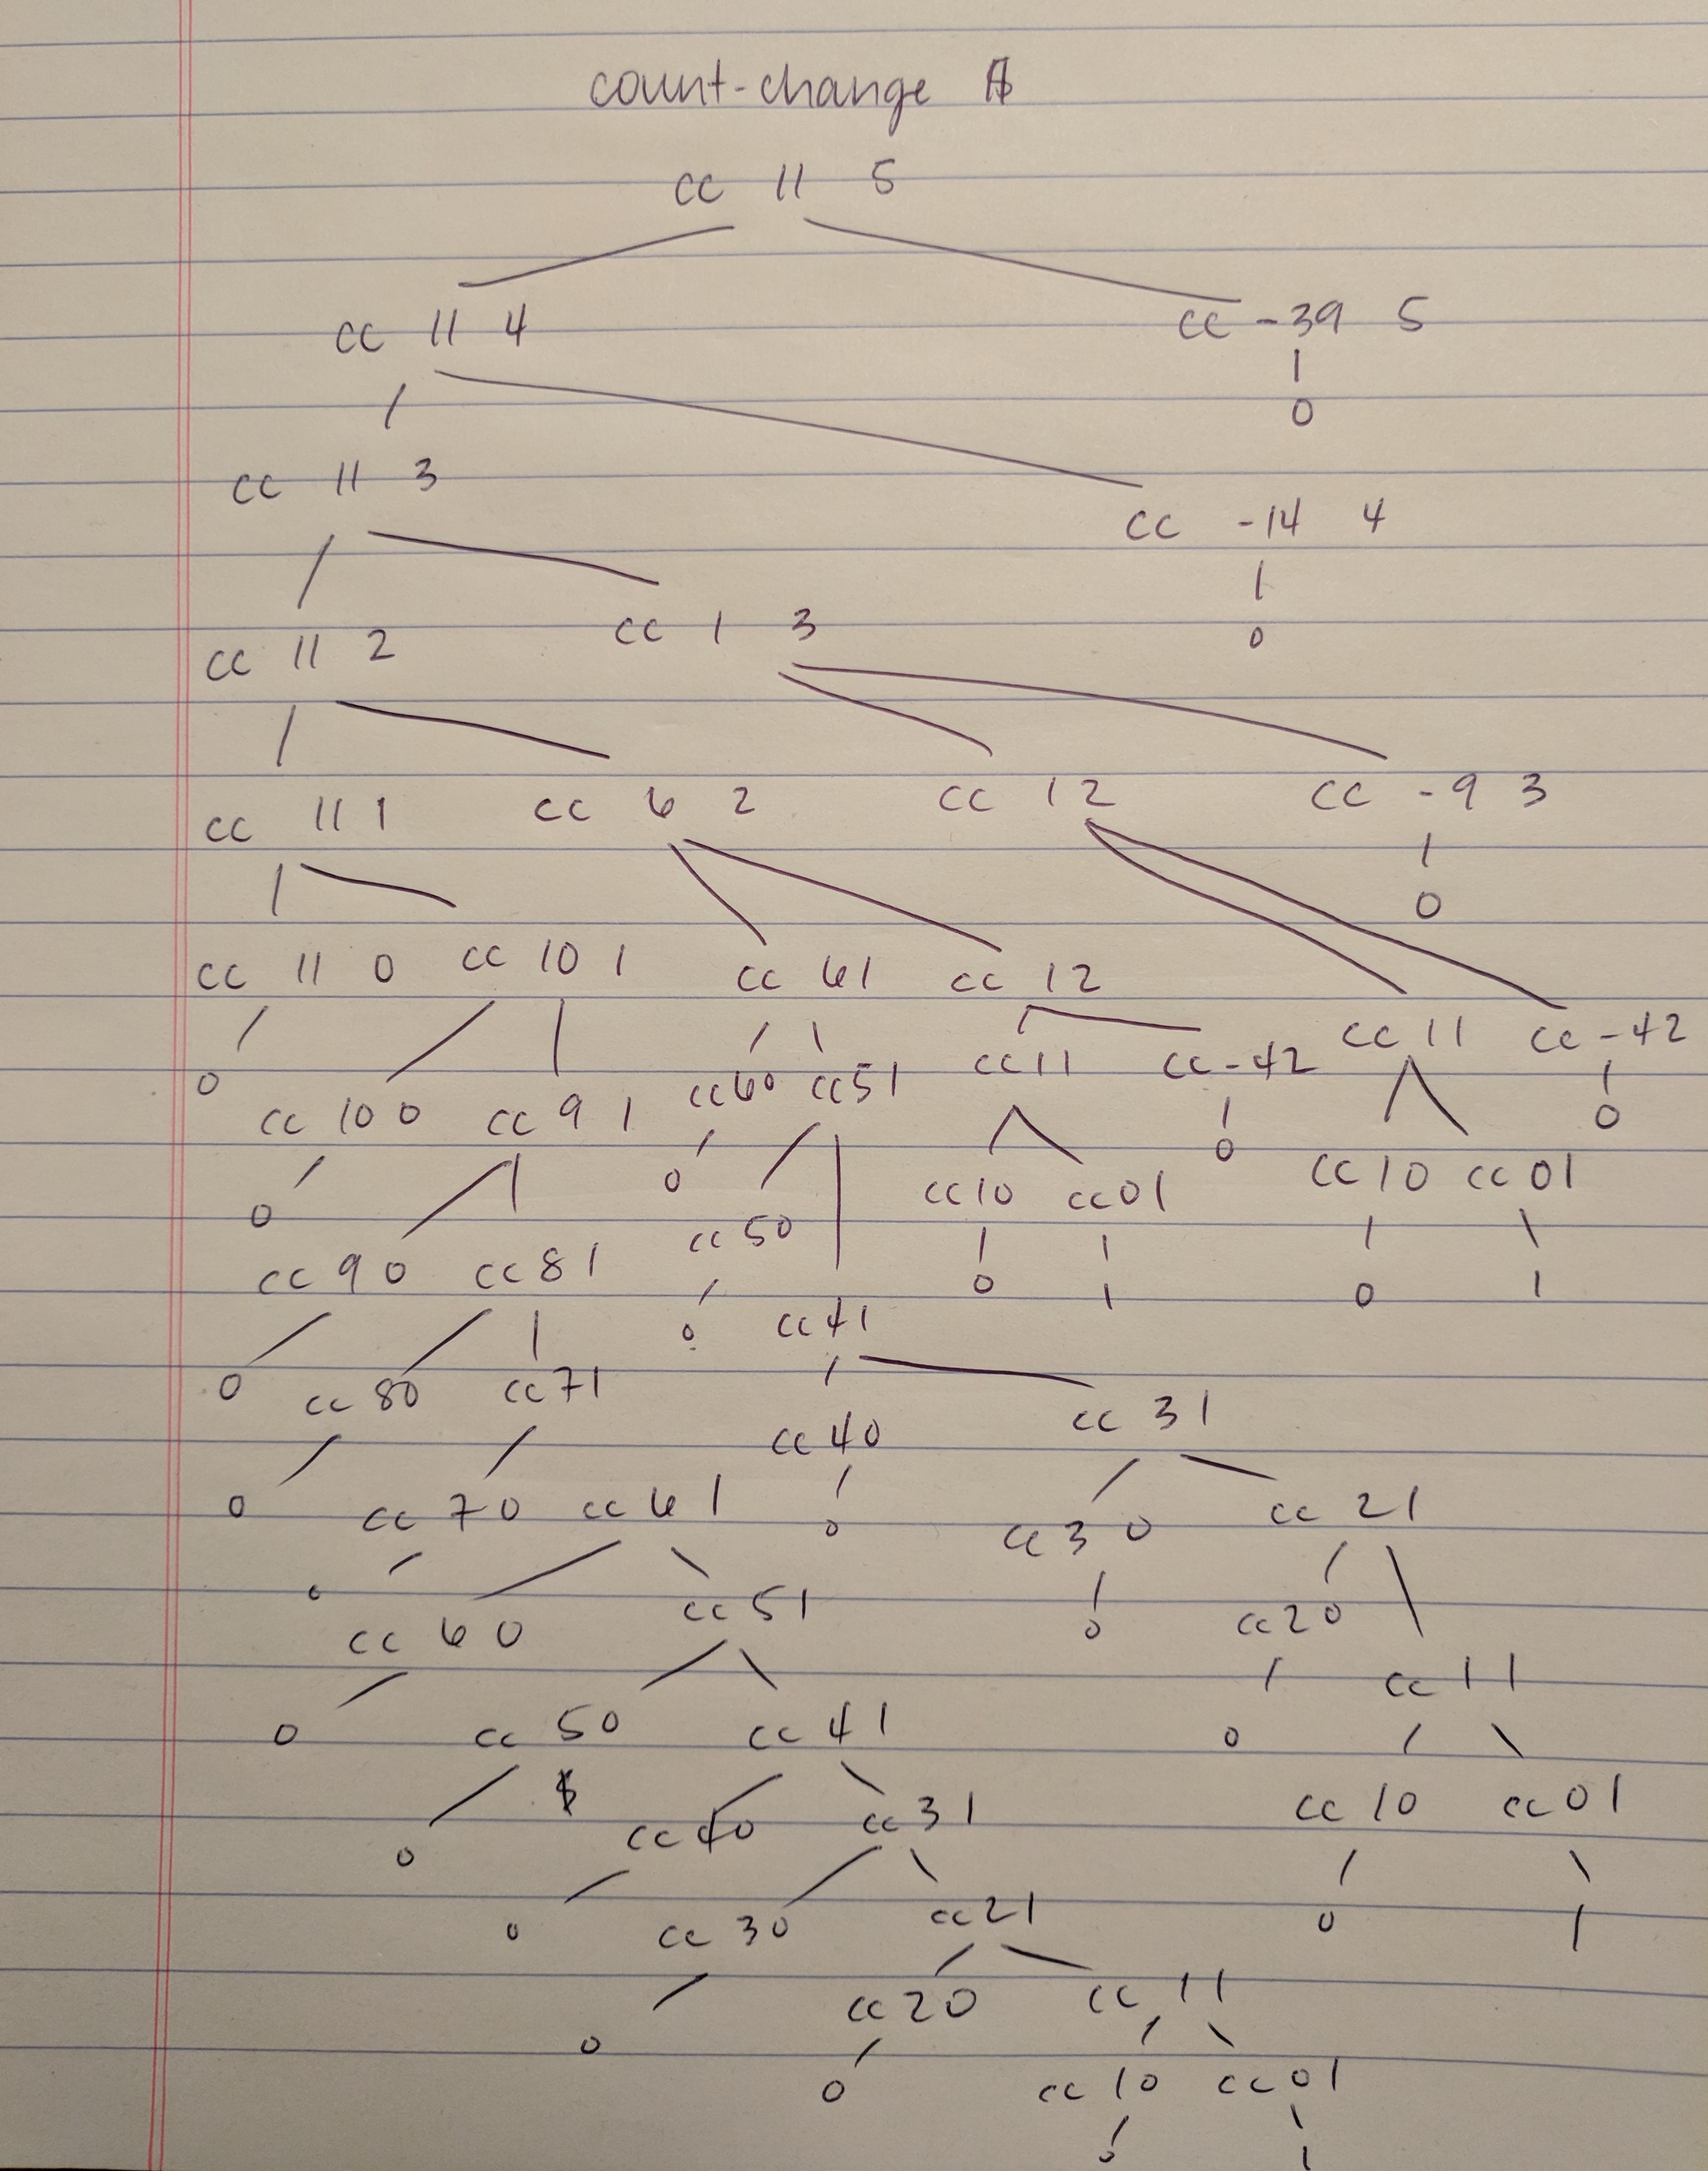 count-change
cc 11 5
cc 11 4 cc -39 5
0
cc 11 3
cc -14 4
0
cc 11 2 cc 1 3
cc 11 1 cc 6 2 cc 1 2 cc -9 3
0
cc 11 0 cc 10 1 cc 6 1 cc 1 2
cc 1 1 cc -4 2
0 cc 6 0 cc 5 1 cc 1 1 cc -4 2 0
cc 10 0 cc 9 1 0 0
0 cc 5 0 cc 1 0 cc 0 1 cc 1 0 cc 0 1
cc 9 0 cc 8 1 0 cc 4 1 0 1 0 1
0 cc 8 0 cc 7 1 cc 3 1
cc 4 0
0 cc 7 0 cc 6 1 0 cc 3 0 cc 2 1
0 cc 6 0 cc 5 1 0 cc 2 0
cc 1 1
0 cc 5 0 cc 4 1 0
0 cc 4 0 cc 3 1 cc 1 0 cc 0 1
0 cc 3 0 cc 2 1 0 1
0 cc 2 0 cc 1 1
0 cc 1 0 cc 0 1
0 1